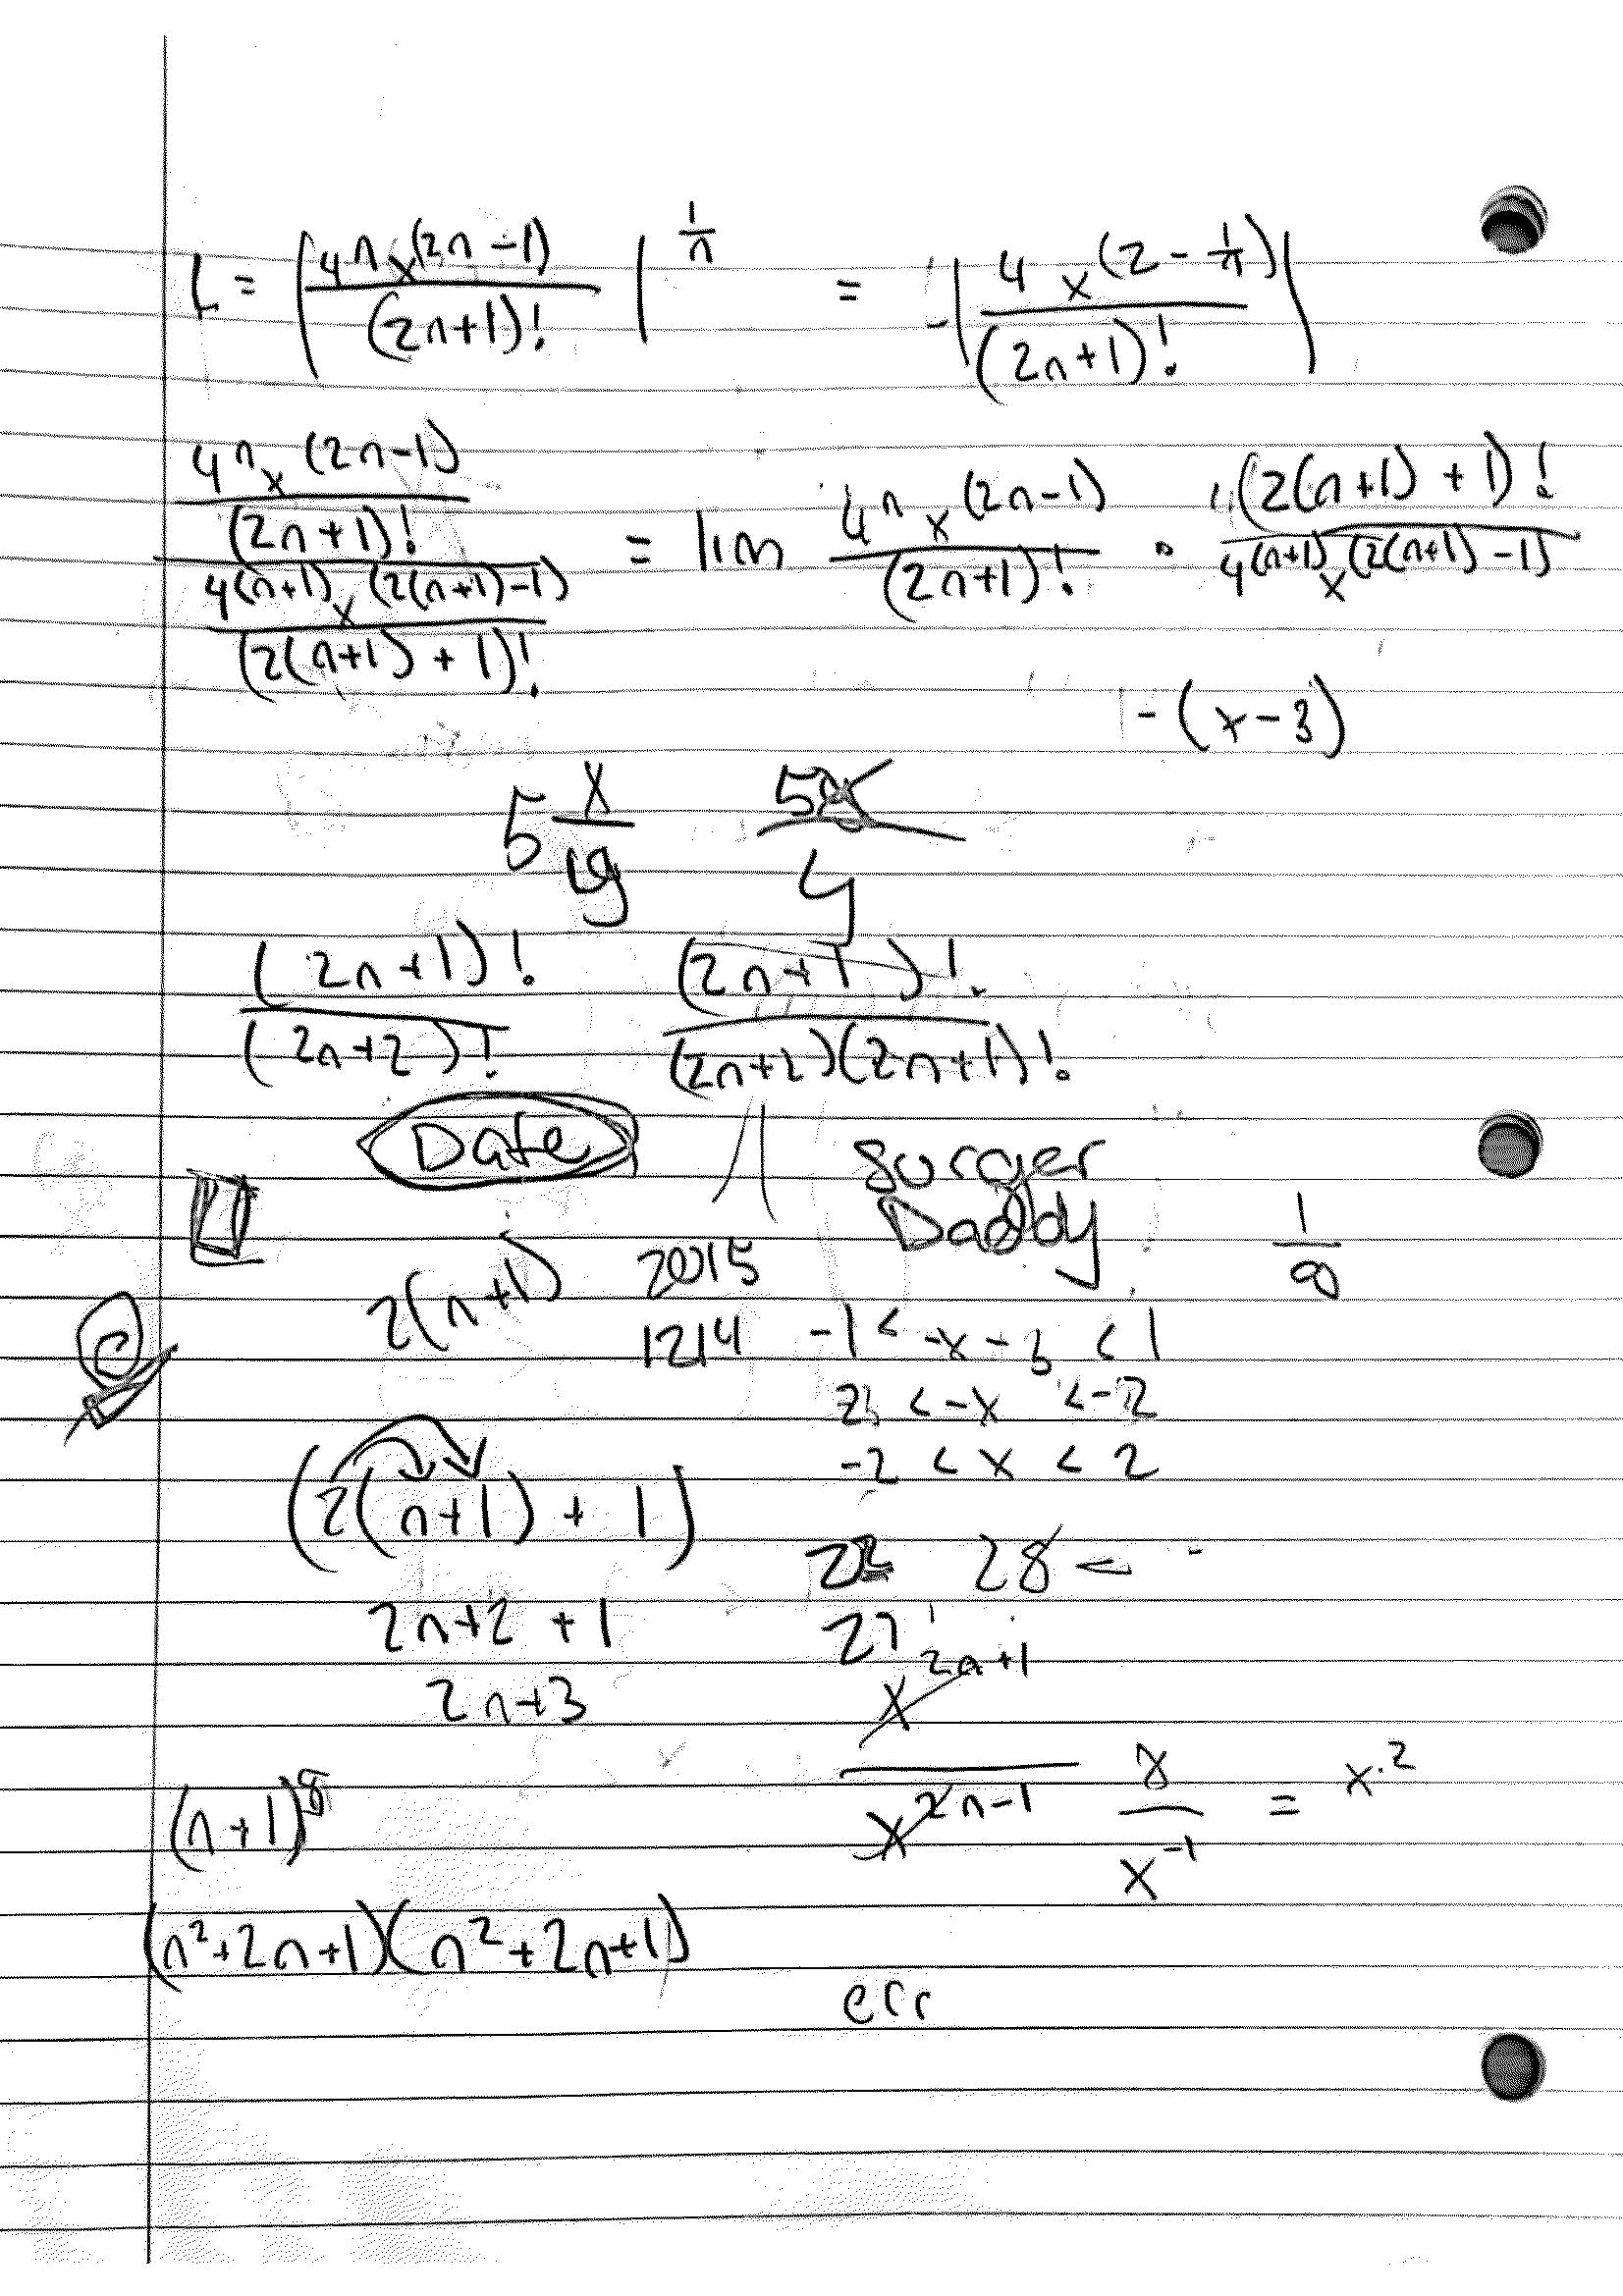 L = | 4^n x^(2n-1) / (2n+1)! |^(1/n) = | 4 x^(2 - 1/n) / (2n+1)! |
4^n x^(2n-1) / (2n+1)! / 4^(n+1) x^(2(n+1)-1) / (2(n+1)+1)! = lim 4^n x^(2n-1) / (2n+1)! · (2(n+1)+1)! / 4^(n+1) x^(2(n+1)-1)
-(x-3)
5 x/y
(2n+1)! / (2n+2)! (2n+1)! / (2n+2)(2n+1)!
Date
Burger
Daddy
2(n+1) 2015
1214 -1 < -x-3 < 1
< -x < -2
-2 < x < 2
(2(n+1)+1)
28 =
2n+2+1 27
2n+3 x^(2n+1) / x^(2n-1)
(n+1) x / x^-1 = x^.2
(n²+2n+1)(n²+2n+1)
err